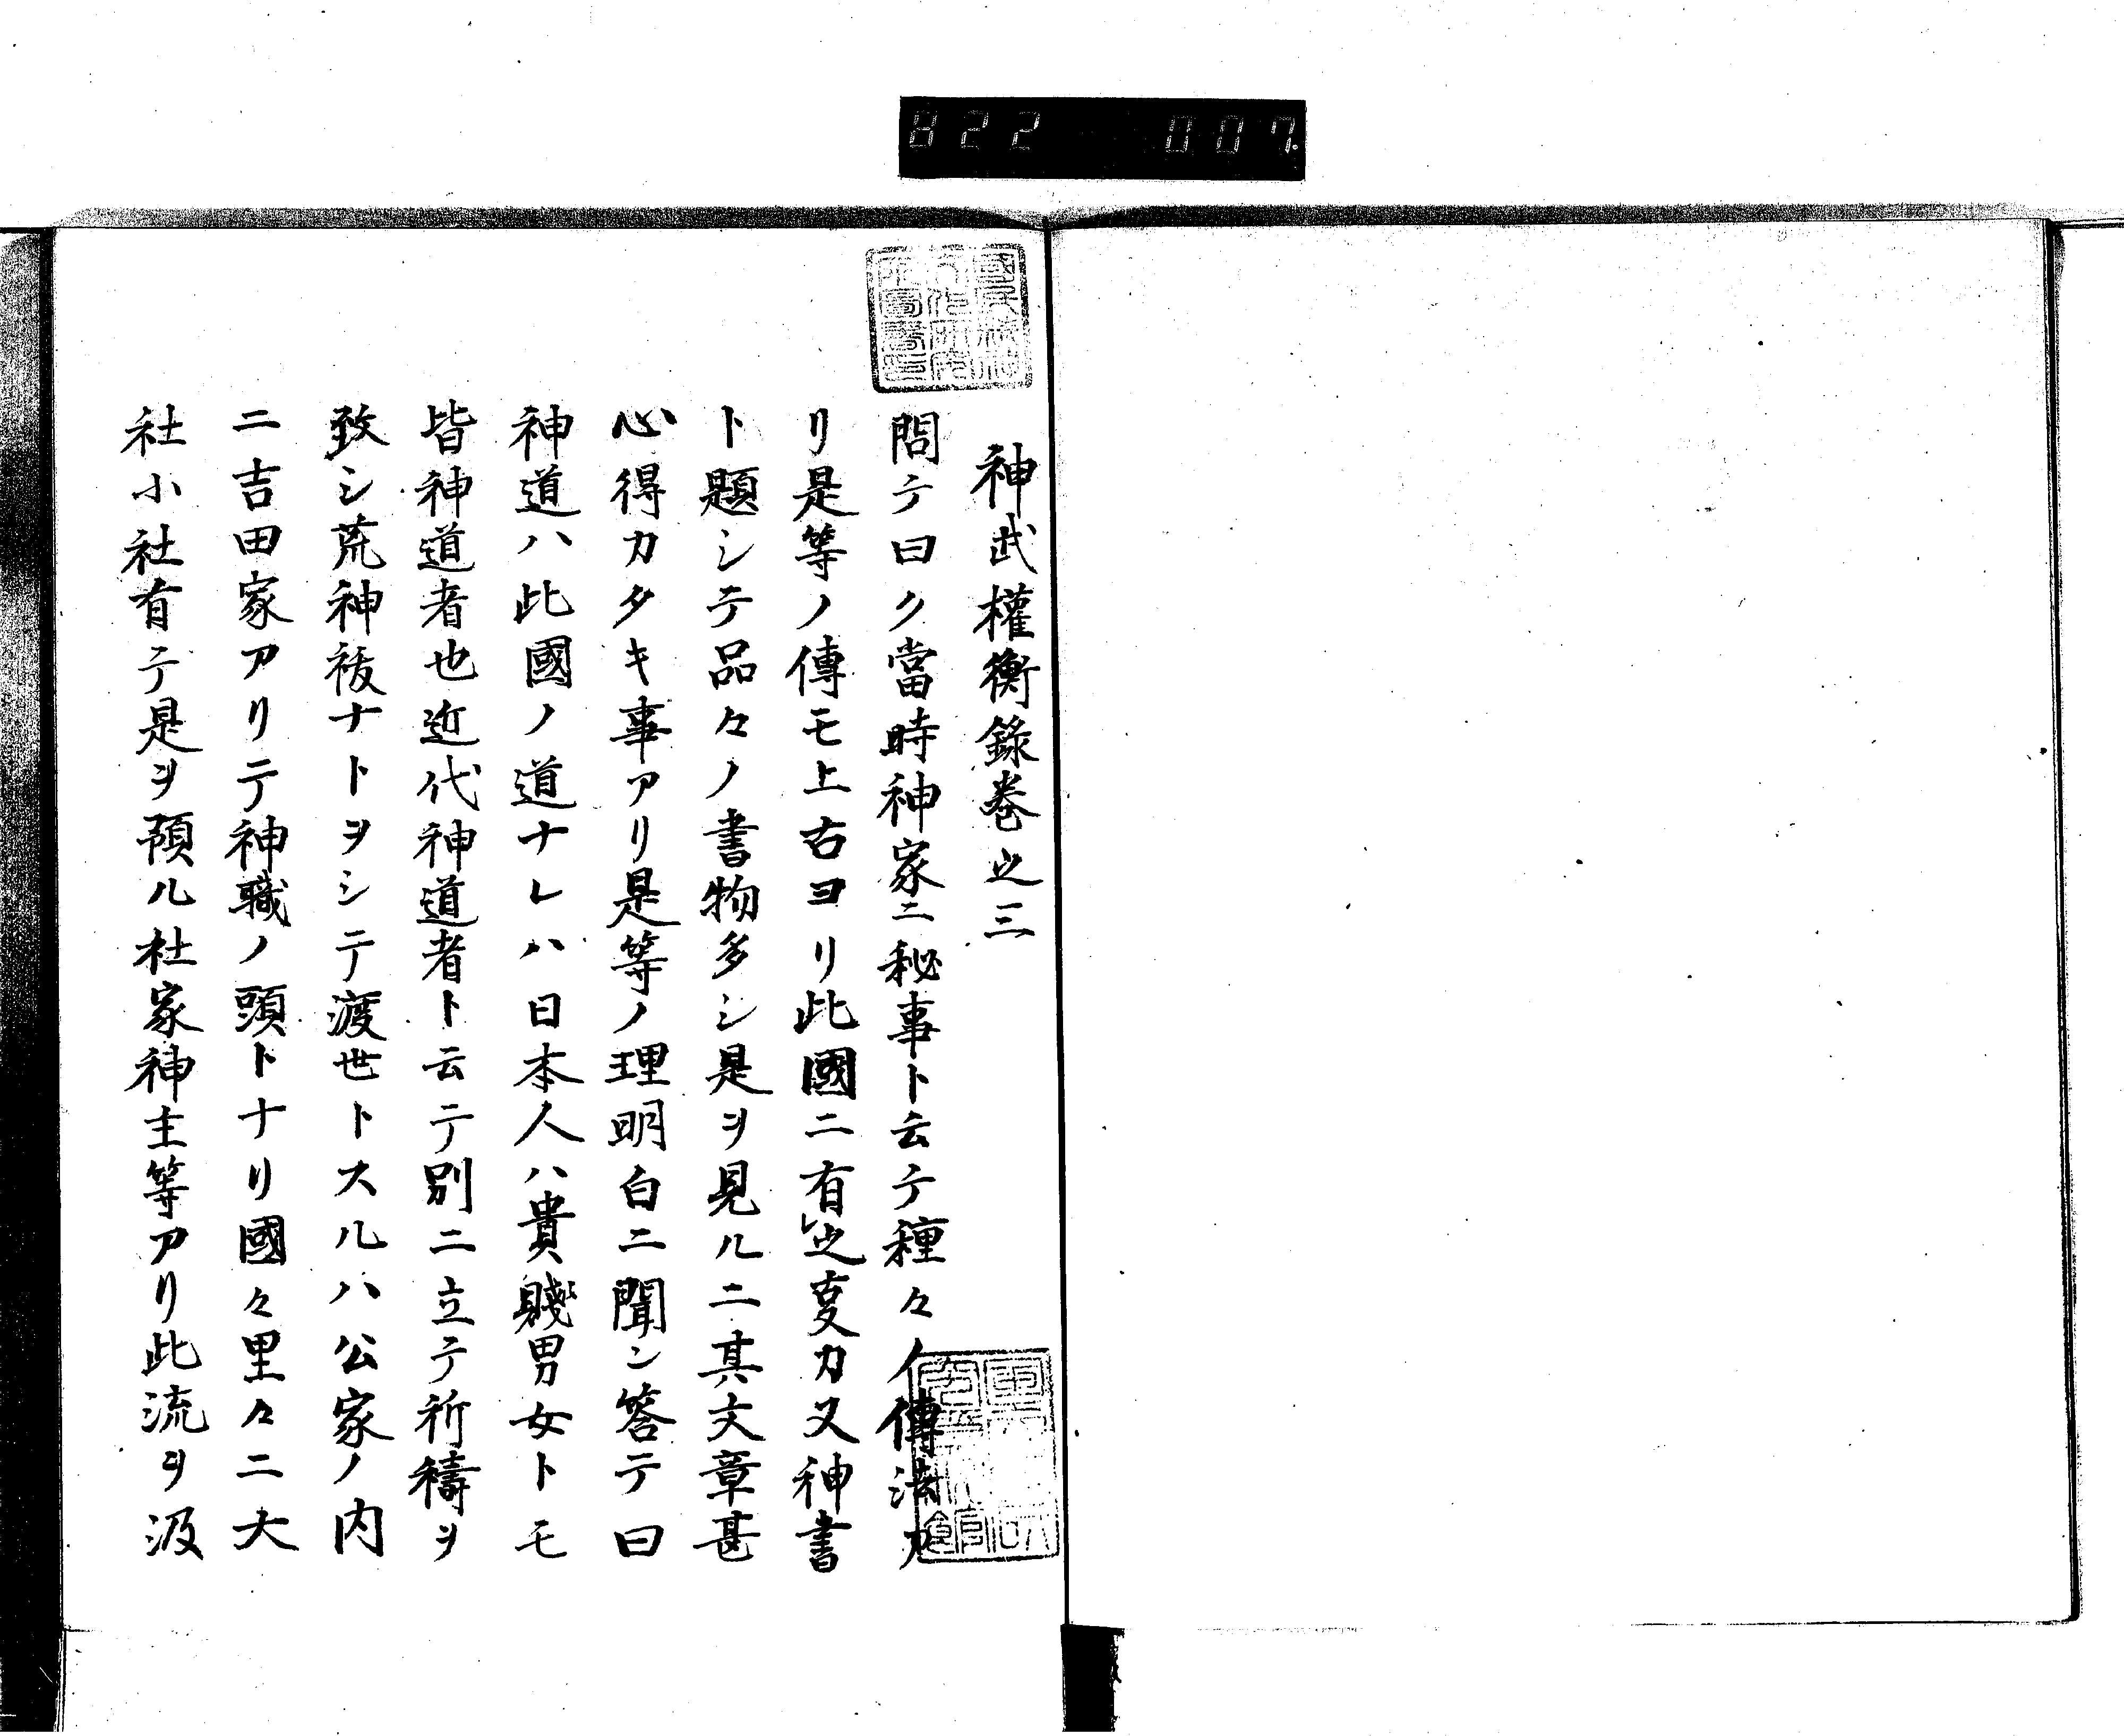 822 007.
神武權衡錄卷之三
問テ曰ク當時神家ニ秘事ト云テ種々ノ傳法ア
リ是等ノ傳モ上古ヨリ此國ニ有レ之㕝カ又神書
ト題シテ品々ノ書物多シ是ヲ見ルニ其文章甚
心得カタキ事アリ是等ノ理明白ニ聞ン答テ曰
神道ハ此國ノ道ナレハ日本人ハ貴賤男女トモ
皆神道者也近代神道者ト云テ別ニ立テ祈禱ヲ
致シ荒神祓ナトヲシテ渡世トスルハ公家ノ内
ニ吉田家アリテ神職ノ頭トナリ國々里々ニ大
社小社有テ是ヲ預ル社家神主等アリ此流ヲ汲